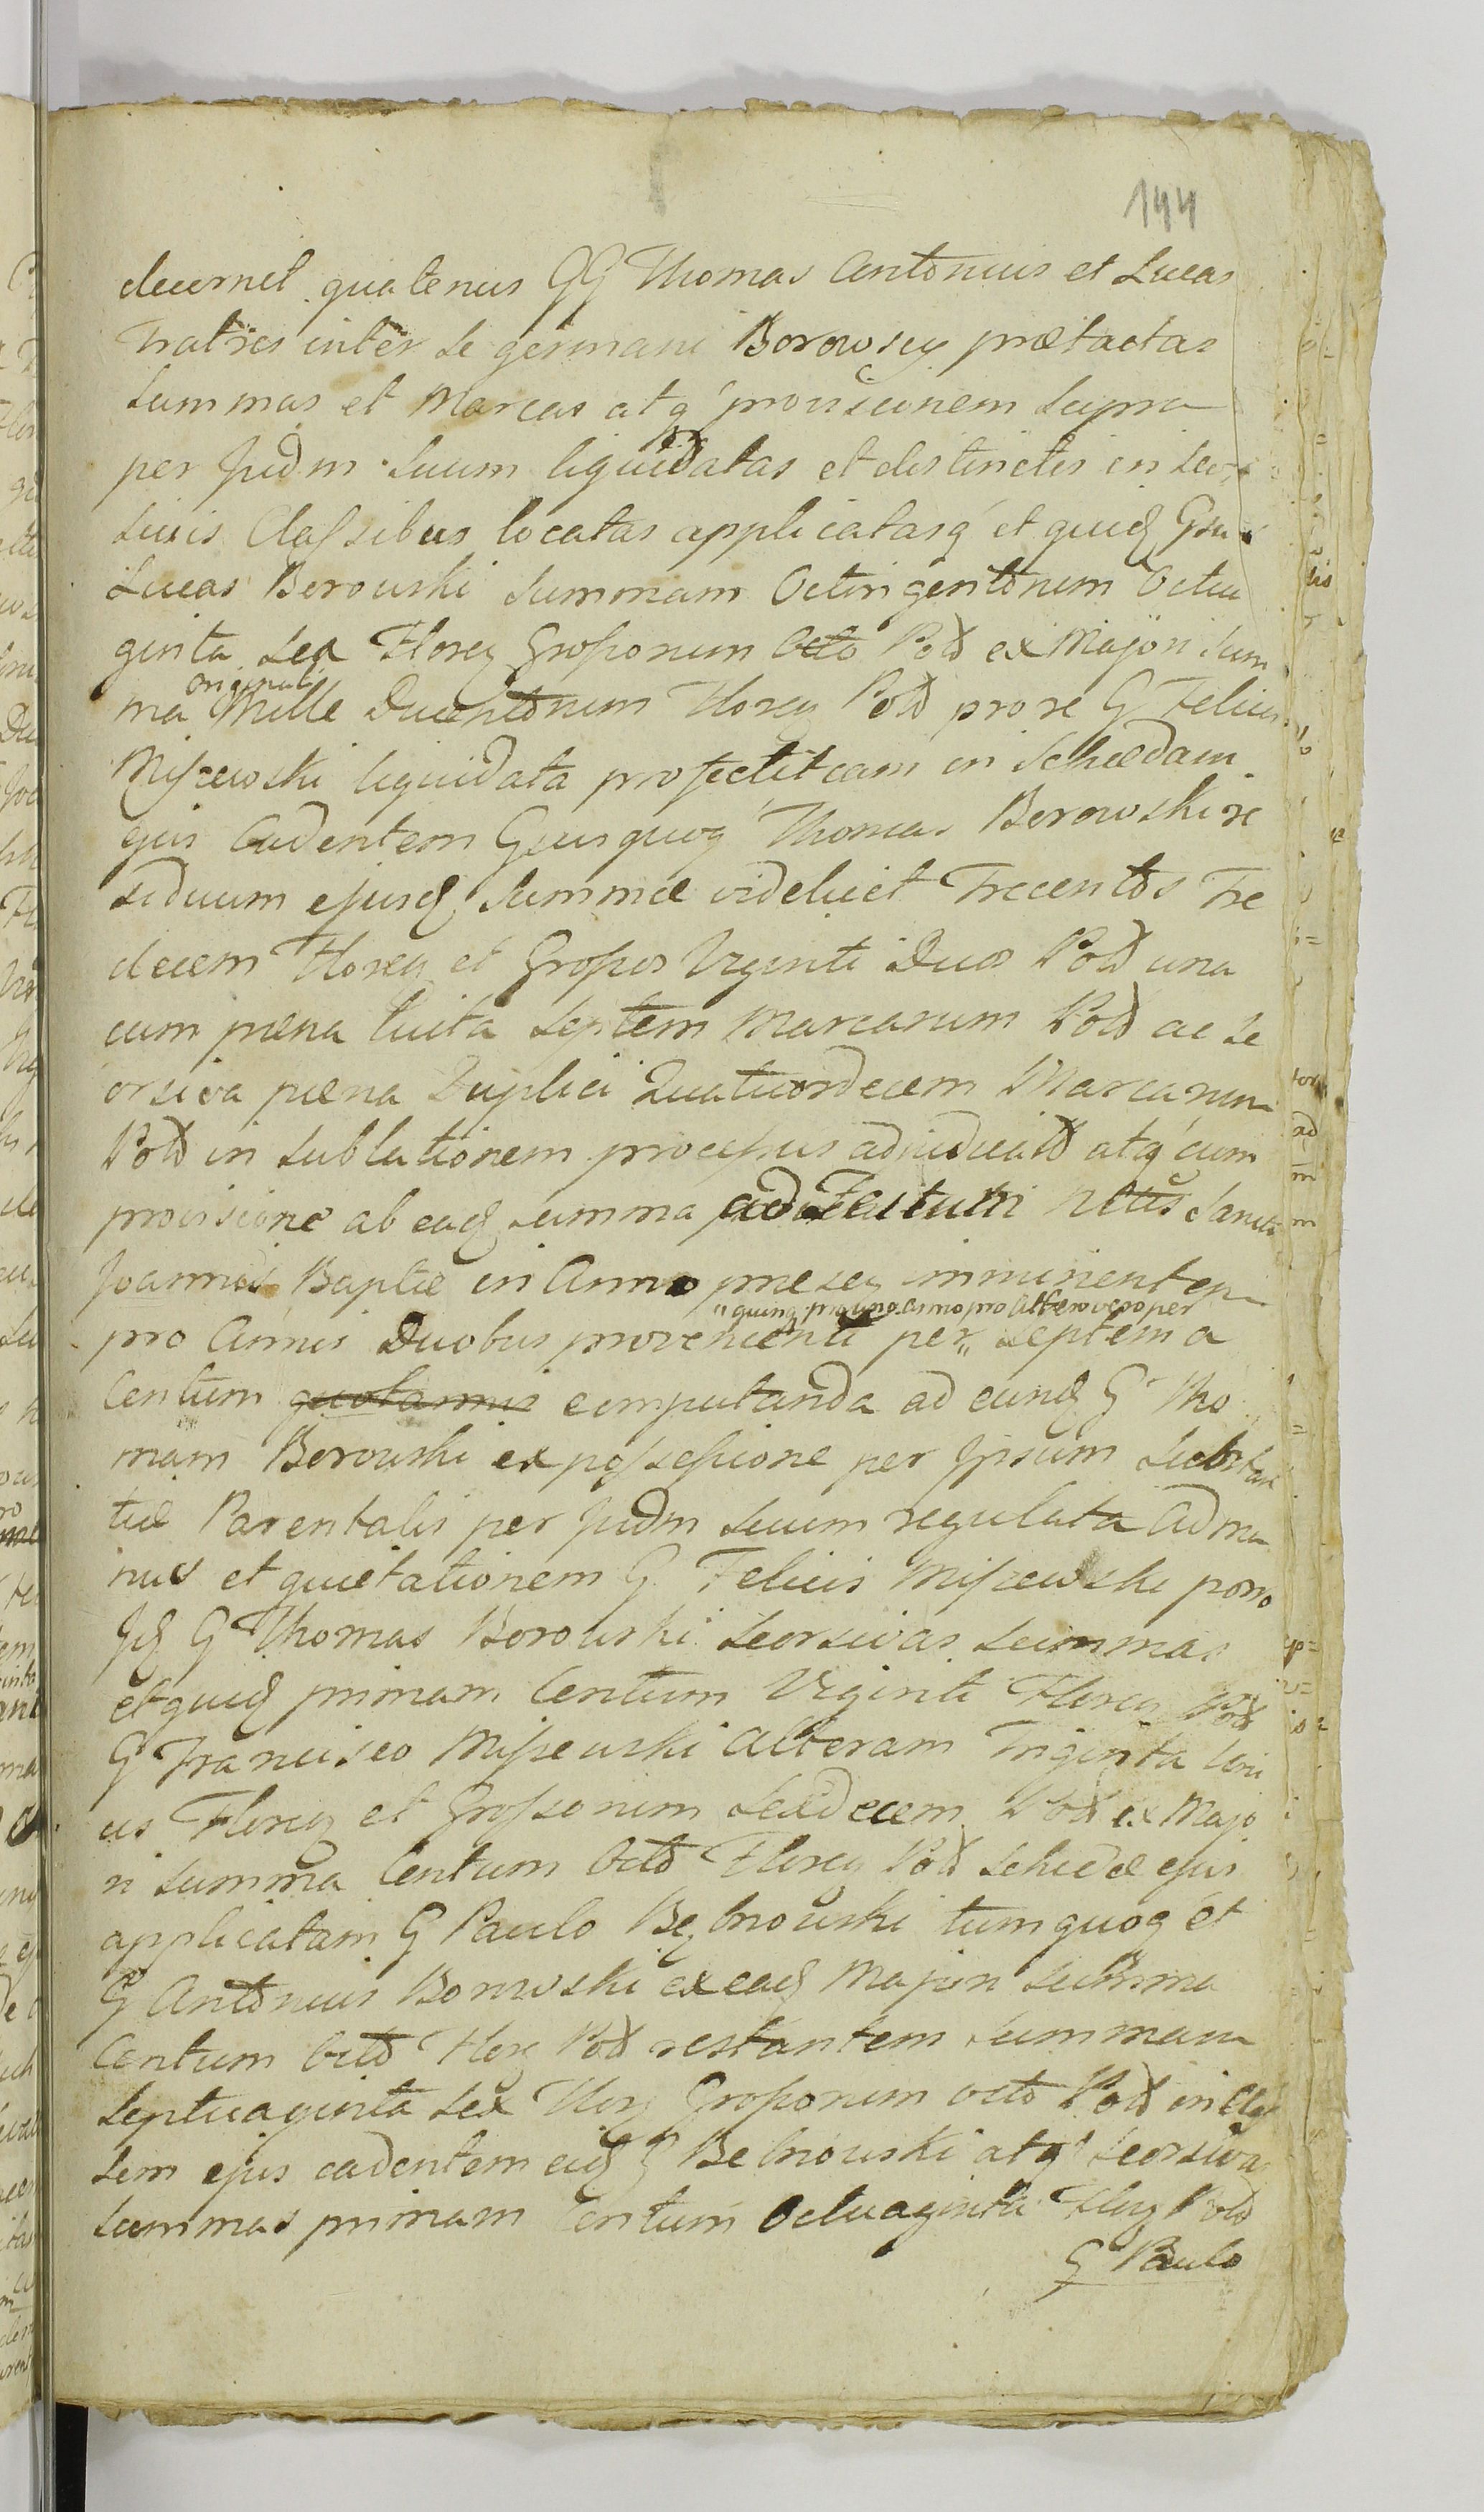 144
decernet quatenus GG Thomas Antonius et Lucas
Fratres inter se germani Borowscy prætactas
Summas et Marcas atq provisionem Supra
per Judm Suum liquidatas et distinctis in seor
sivis Classibus locatas applicatasq et quid Gsus
Lucas Borowski Summam Octingentorum Octua
ginta Sex Floren Grossorum Octo Pold ex Majori Sum
originali
ma Mille Ducentorum Floren Pold pro re G Felicis
Miszewski liquidata profectit eam in Schedam
ejus Cadentem Gsus quoq Thomas Borowski re
siduum ejusd Summæ videlicet Trecentos Tre
decem Floren et Grossos Viginti Duos Pold una
cum pæna luita Septem Marcarum Pold ac Se
orsiva pæna Duplici Quatuordecem Marcarum
Pold in Sublationem processus adjudicatd atq cum
provisione ab ead Summa ad Festum Nttis Sancti
Joannis Baptæ in Anno præsen imminentem
" quinq pro uno anno pro Altero vero per
pro Annis Duobus provenienti per " Septem a
Centum quotannis computanda ad eund G Tho
mam Borowski ex possessione per Ipsum Substan
tiæ Parentalis per Judm Suum regulata ad ma
nus et quietationem G Felicis Miszewski porro
Jd G Thomas Borowski Seorsivas Summas
et quid primam Centum Viginti Floren Pold
G Francisco Miszewski Alteram Triginta Uni
us Floren et Grossorum Sexdecem Pold ex Majo
ri Summa Centum Octo Floren Pold Schedæ ejus
applicatam G Paulo Bębnowski tum quoq et
G Antonius Borowski ex ead Majori Summa
Centum Octo Flor Pold restantem Summam
Septuaginta Sex Flor Grossorum octo Pold in Clas
sem ejus cadentem eid G Bebnowski atq Seorsivas
Summas primam Centum Octuaginta Flor Pold
G Paulo